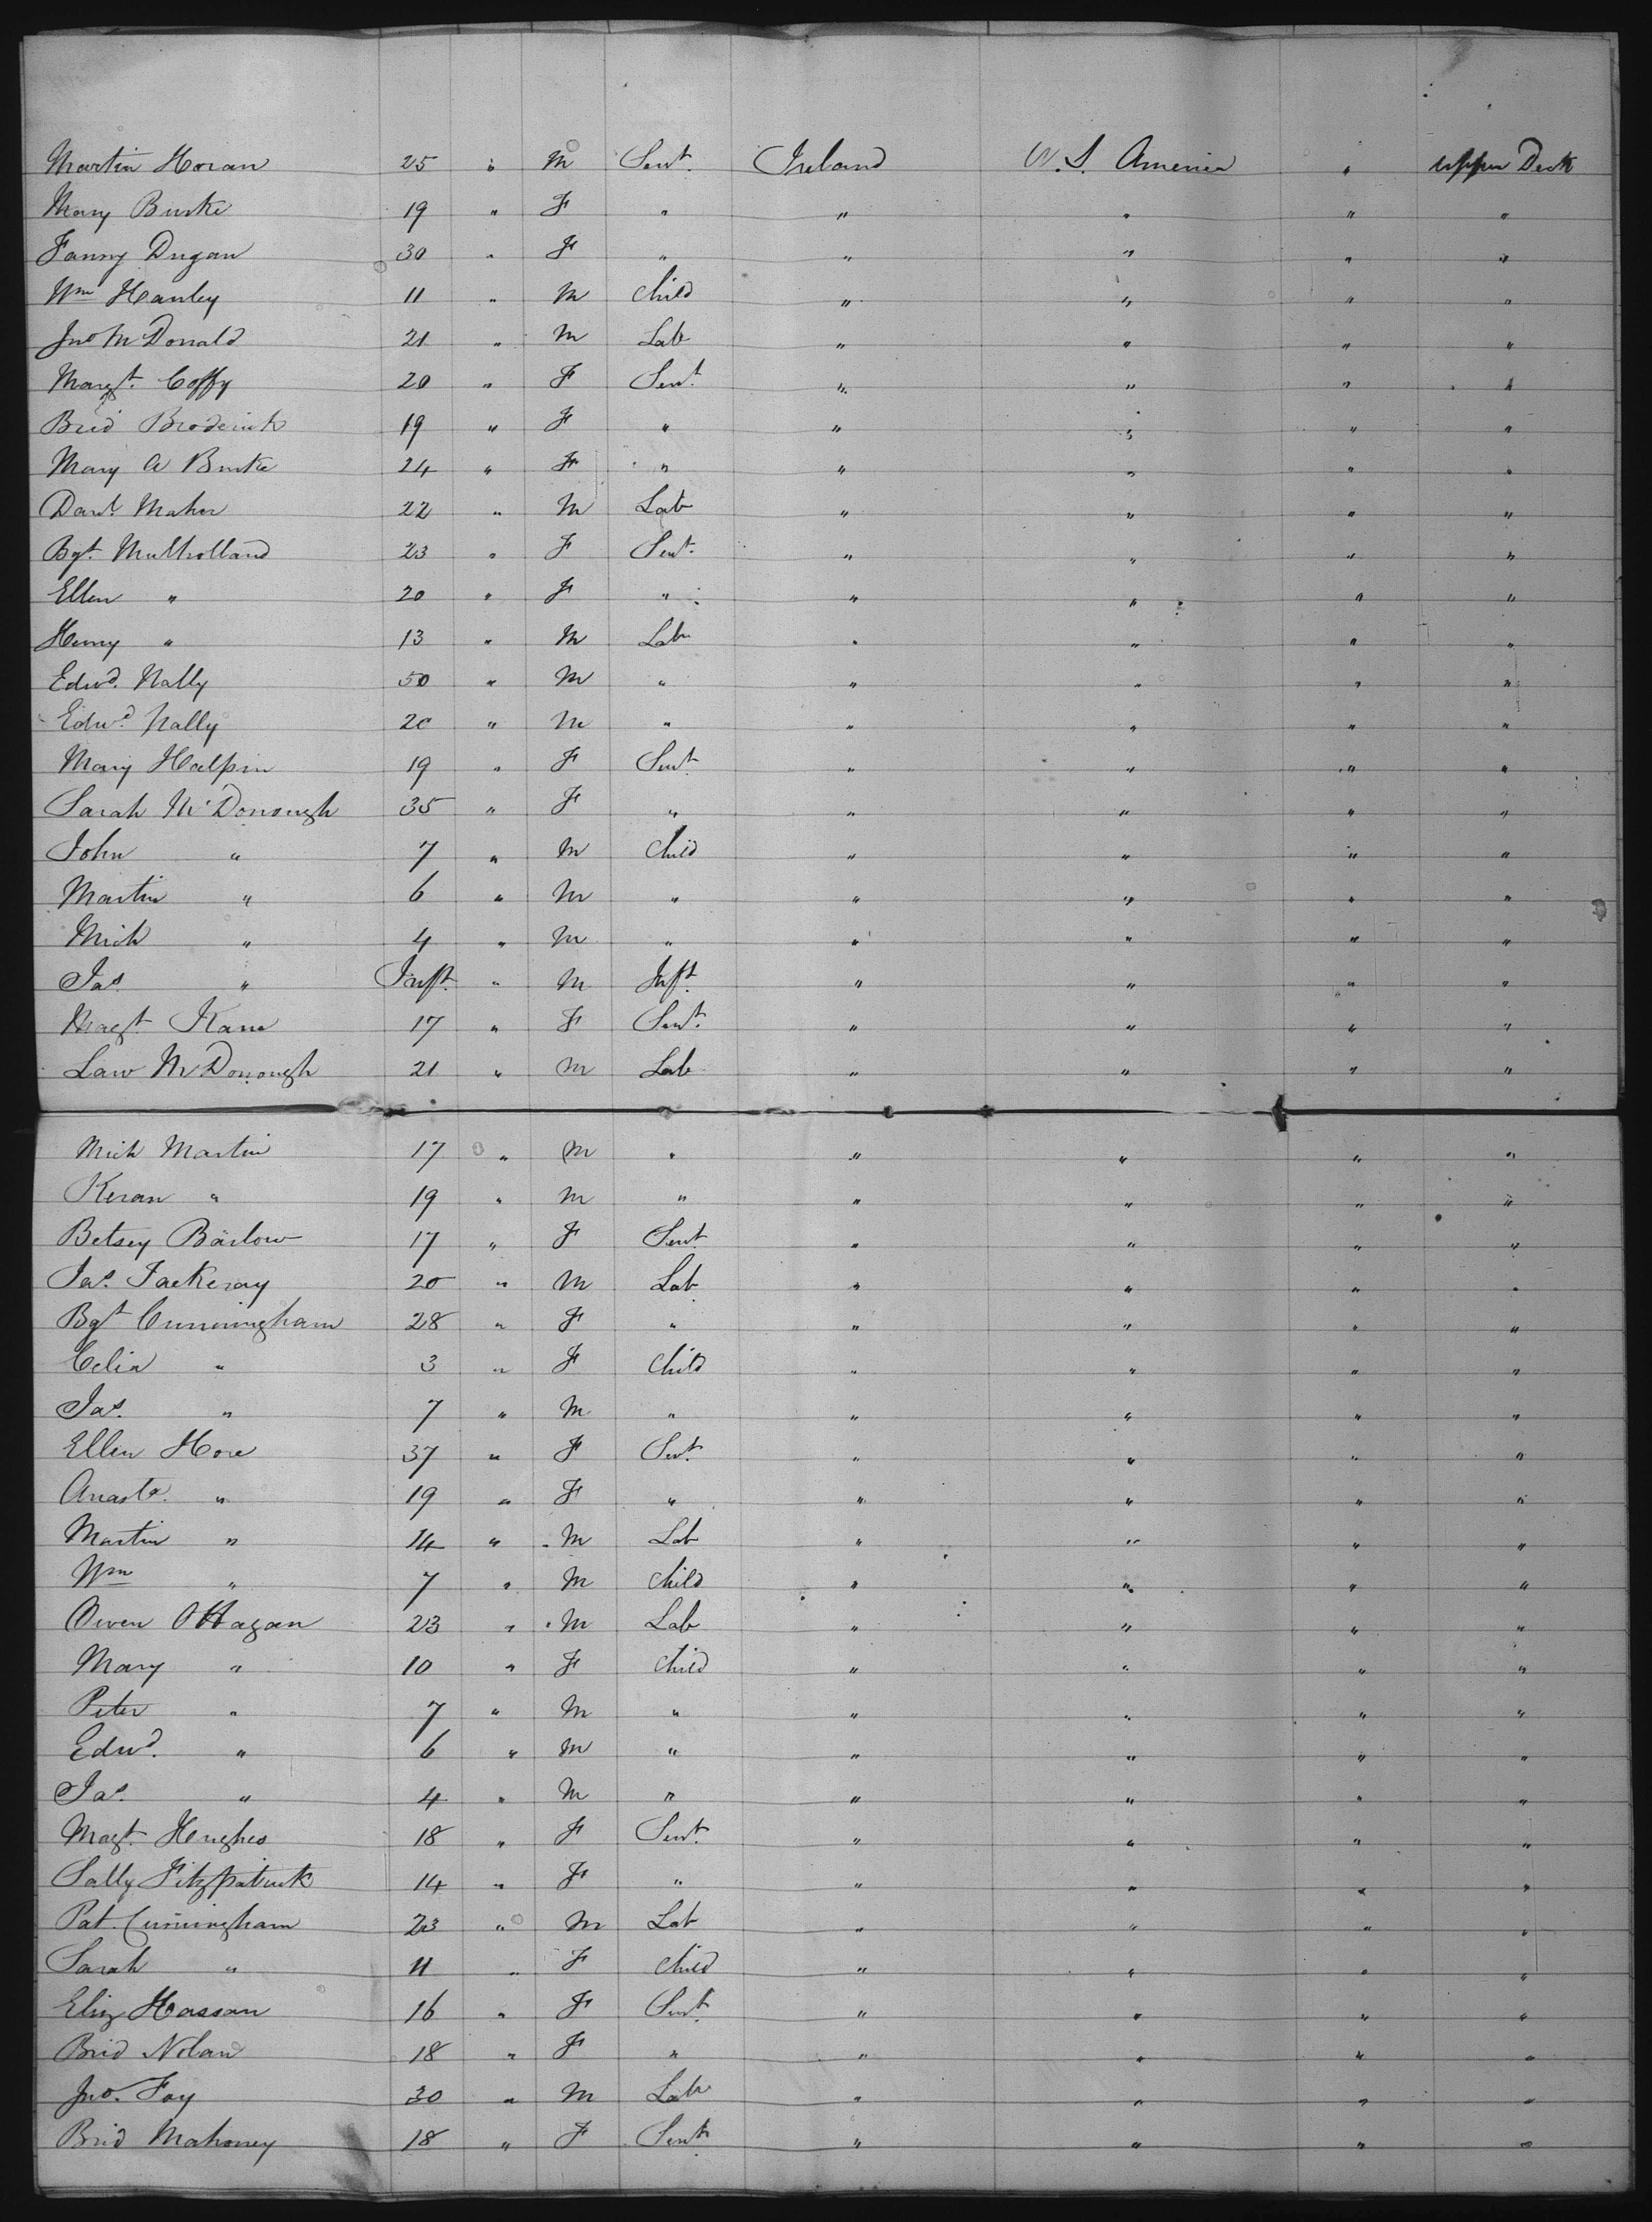 Martin Horan 25 " M Servt. Ireland U.S. America " Upper Deck
Mary Burke 19 " F " " " " "
Fanny Dugan 30 " F " " " " "
Wm Hanley 11 " M Child " " " "
Jno McDonald 21 " M Lab " " " "
Margt. Coffy 20 " F Servt. " " " "
Brid Broderick 19 " F " " " " "
Mary A Burke 24 " F " " " " "
Danl. Maher 22 " M Lab " " " "
Bgt. Mulholland 23 " F Servt. " " " "
Ellen " 20 " F " " " " "
Henry " 13 " M Lab " " " "
Edwd. Nally 50 " M " " " " "
Edwd. Nally 20 " M " " " " "
Mary Halpin 19 " F Servt " " " "
Sarah McDonough 35 " F " " " " "
John " 7 " M Child " " " "
Martin " 6 " M " " " " "
Mich " 4 " M " " " " "
Jas. " Inft. " M Inft. " " " "
Magt. Kane 17 " F Servt. " " " "
Law McDonough 21 " M Lab " " " "
Mich Martin 17 " M " " " " "
Keran " 19 " M " " " " "
Betsey Barlow 17 " F Servt " " " "
Jas. Fackeray 20 " M Lab " " " "
Bgt Cunningham 28 " F " " " " "
Celia " 3 " F Child " " " "
Jas. " 7 " M " " " " "
Ellen Hore 37 " F Servt. " " " "
Anasta. " 19 " F " " " " "
Martin " 14 " M Lab " " " "
Wm " 7 " M Child " " " "
Owen OHagan 23 " M Lab " " " "
Mary " 10 " F Child " " " "
Peter " 7 " M " " " " "
Edwd. " 6 " M " " " " "
Jas. " 4 " M " " " " "
Magt. Hughes 18 " F Servt. " " " "
Sally Fitzpatrick 14 " F " " " " "
Pat. Cunningham 23 " M Lab " " " "
Sarah " 11 " F Child " " " "
Eliz Hassan 16 " F Servt. " " " "
Brid Nolan 18 " F " " " " "
Jno. Foy 30 " M Lab " " " "
Brid Mahoney 18 " F Servt " " " "